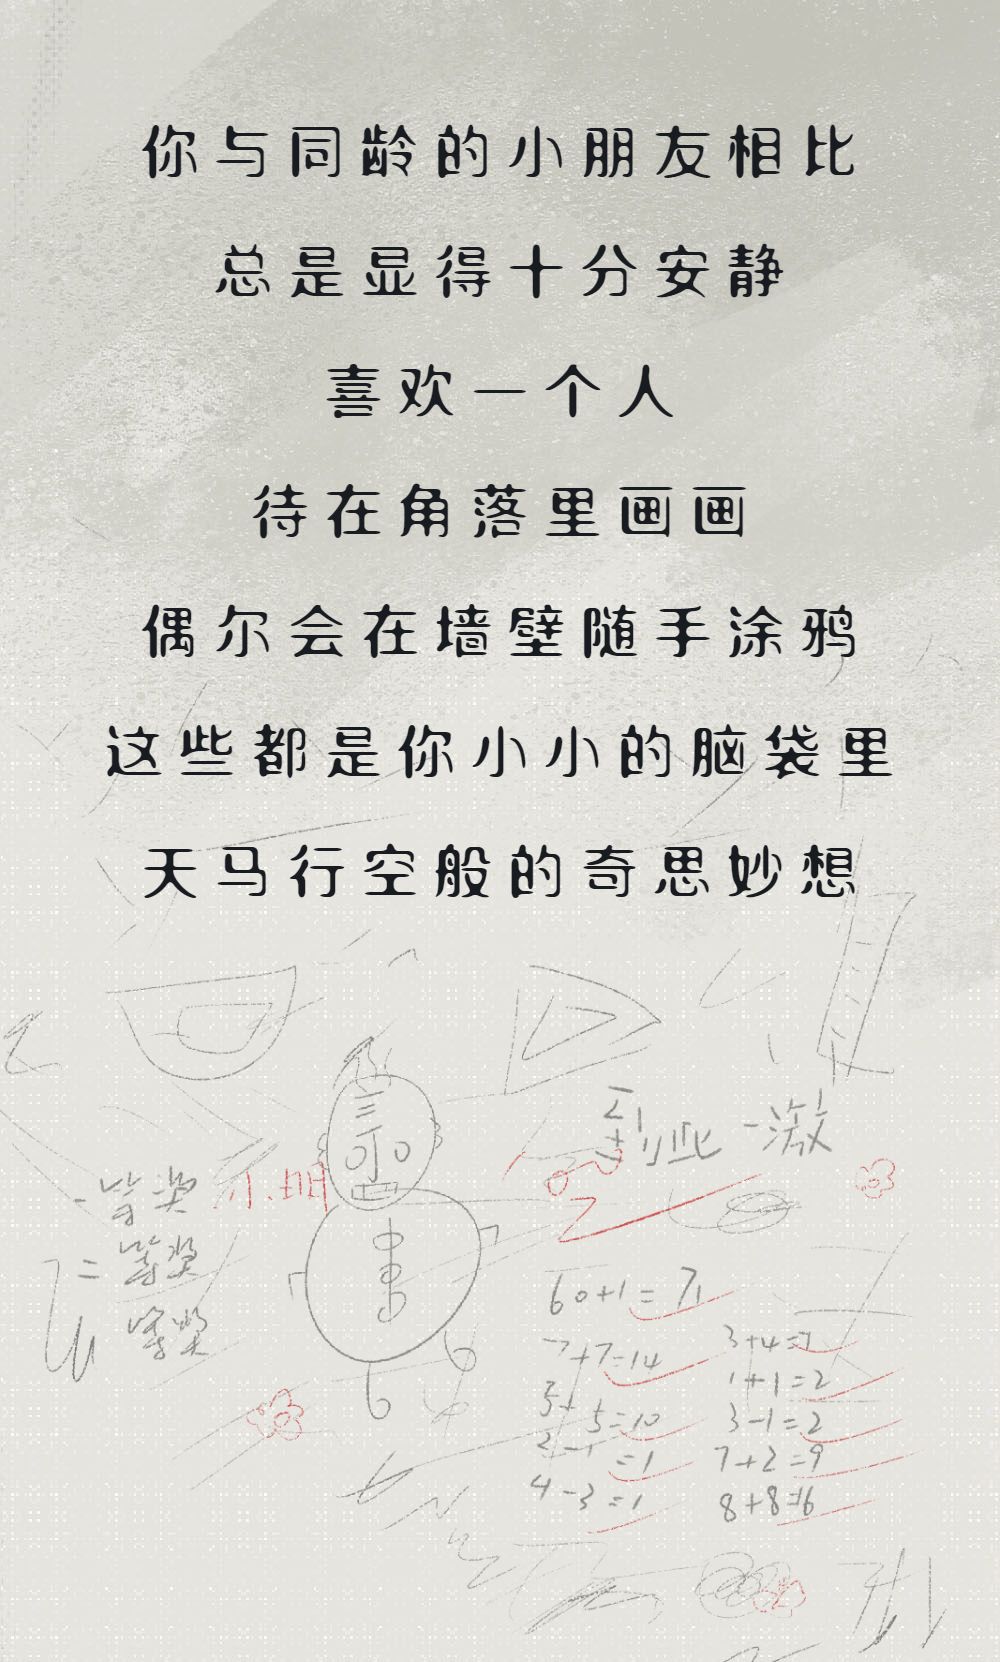 你与同龄的小朋友相比
总是显得十分安静
喜欢一个人
待在角落里画画
偶尔会在墙壁随手涂鸦
这些都是你小小的脑袋里
天马行空般的奇思妙想
到此一激
一等奖 小明
二等奖
等奖
60+1=71
7+7=14 3+4=7
5+5=10 1+1=2
2-1=1 3-1=2
4-3=1 7+2=9
8+8=16